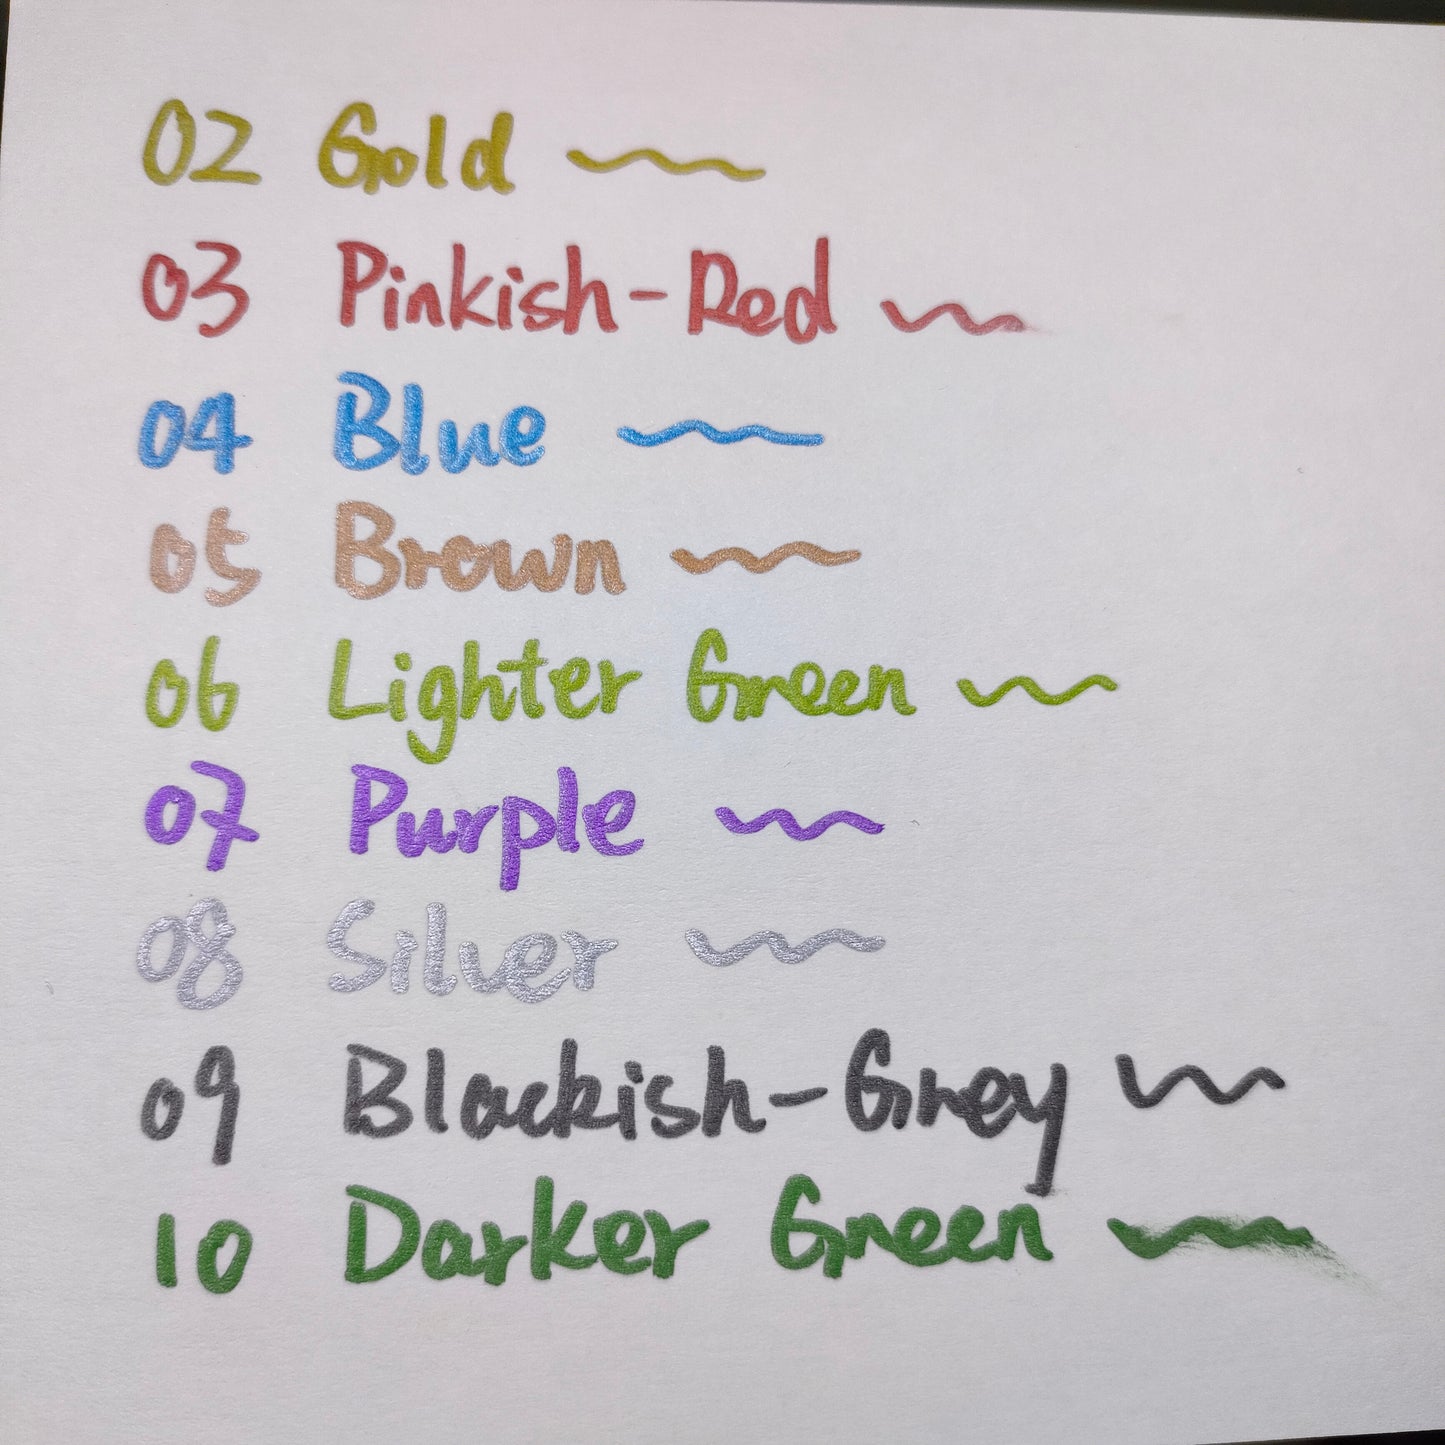 02 Gold
03 Pinkish-Red
04 Blue
05 Brown
06 Lighter Green
07 Purple
08 Silver
09 Blackish-Grey
10 Darker Green